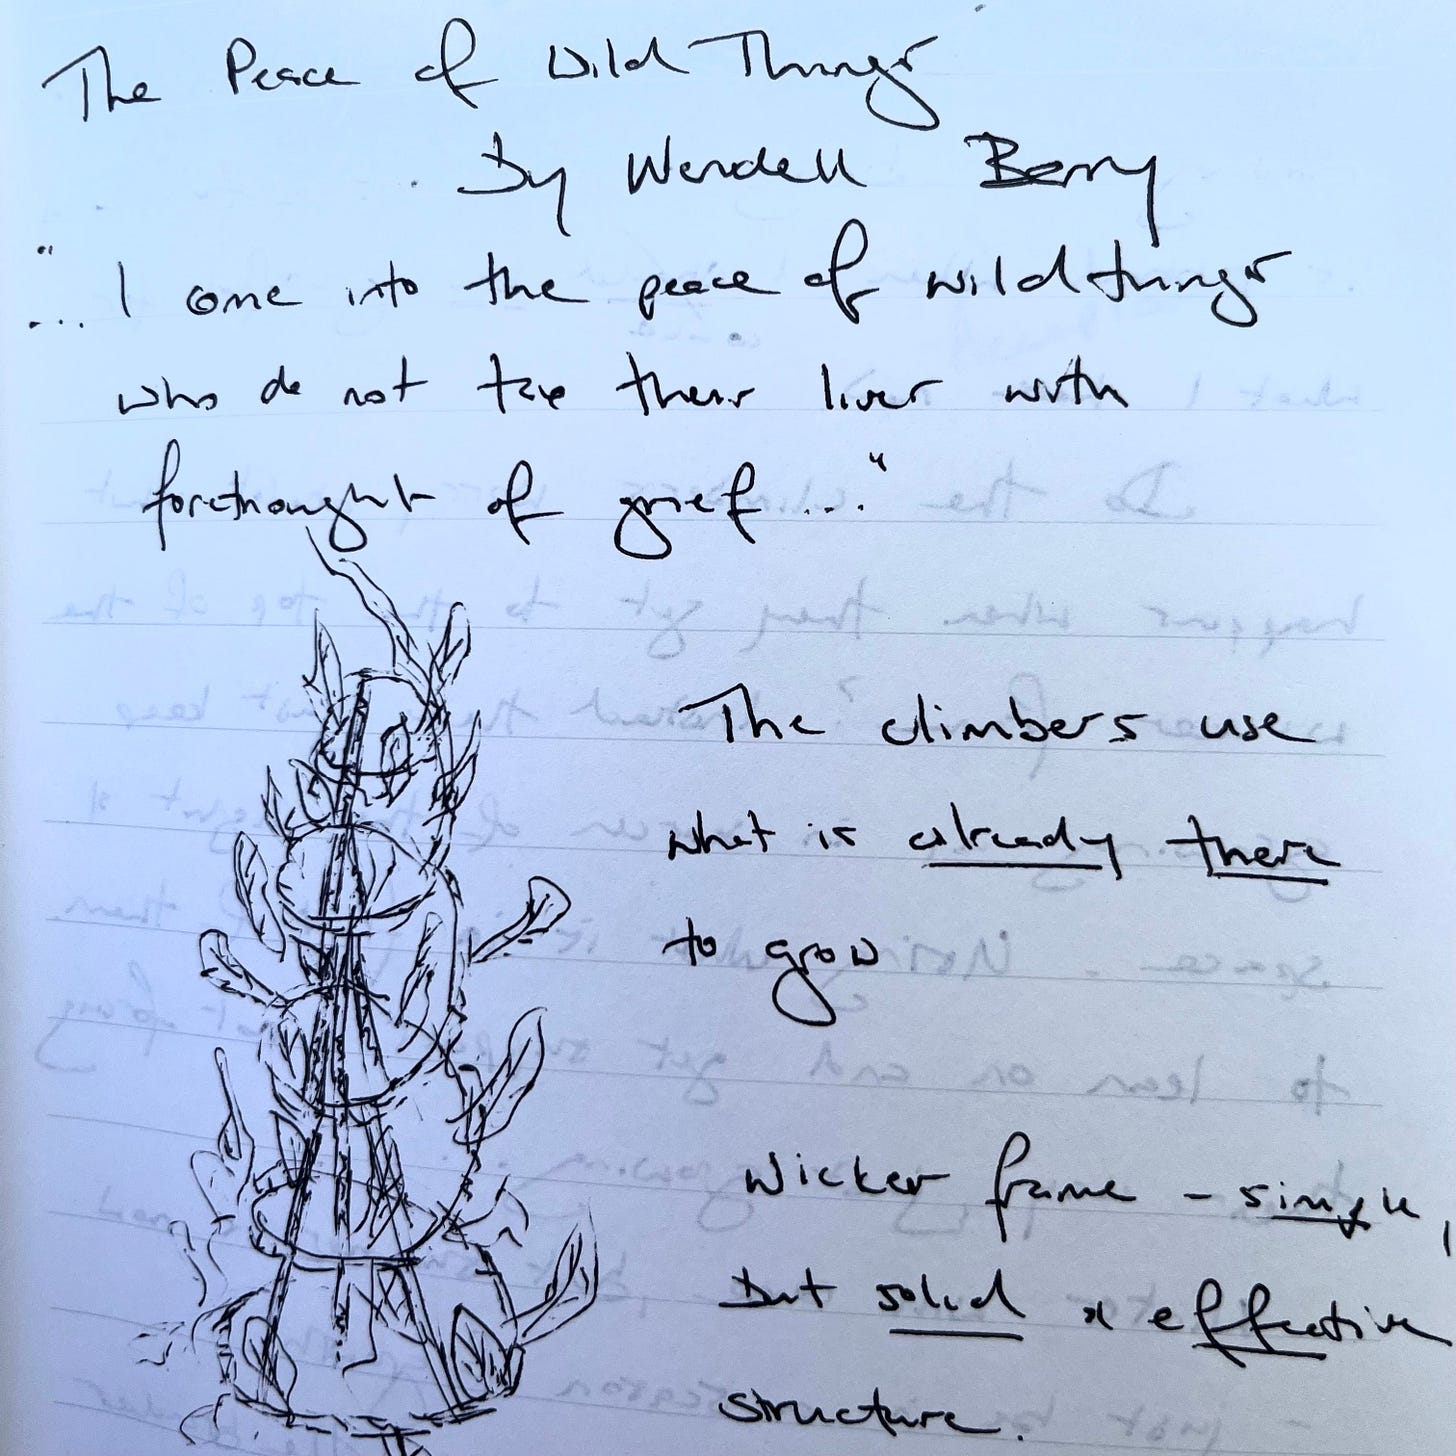 The Peace of Wild Things
By Wendell Berry
"
... I come into the peace of wild things
who do not tax their lives with
forethought of grief..."
The climbers use
what is already there
to grow
Wicker frame - simple,
but solid & effective
structure.